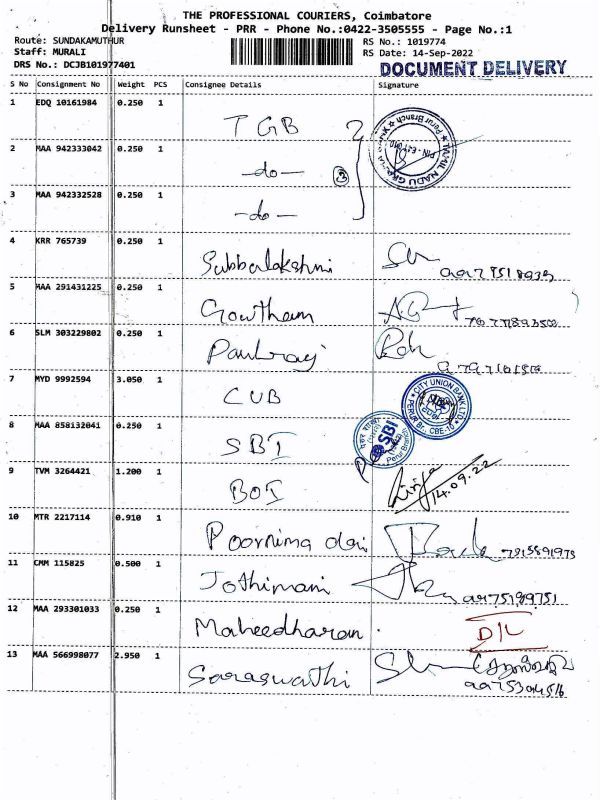 THE PROFESSIONAL COURIERS, Coimbatore
Delivery Runsheet - PRR - Phone No.:0422-3505555 - Page No.:1
Route: SUNDAKAMUTHUR
Staff: MURALI
DRS No.: DCJB101977401
RS No.: 1019774
RS Date: 14-Sep-2022
DOCUMENT DELIVERY
S No Consignment No Weight PCS Consignee Details Signature
1 EDQ 10161984 0.250 1 TGB
2 MAA 942333042 0.250 1 -do- 3
3 MAA 942332528 0.250 1 -do-
TAMIL NADU GRAMA Perur Branch
4 KRR 765739 0.250 1 Subbalakshmi
5 MAA 291431225 0.250 1 Gowtham
6 SLM 303229802 0.250 1 Paulraj
7 MYD 9992594 3.050 1 CUB
CITY UNION BANK LTD. PERUR Br., CBE-10
8 MAA 858132041 0.250 1 SBI
SBI Perur Branch
9 TVM 3264421 1.200 1 BOI 14.09.22
10 MTR 2217114 0.910 1 Poornima dai
11 CMM 115825 0.500 1 Jothimani
12 MAA 293301033 0.250 1 Maheedharan D/L
13 MAA 566998077 2.950 1 Saraswathi